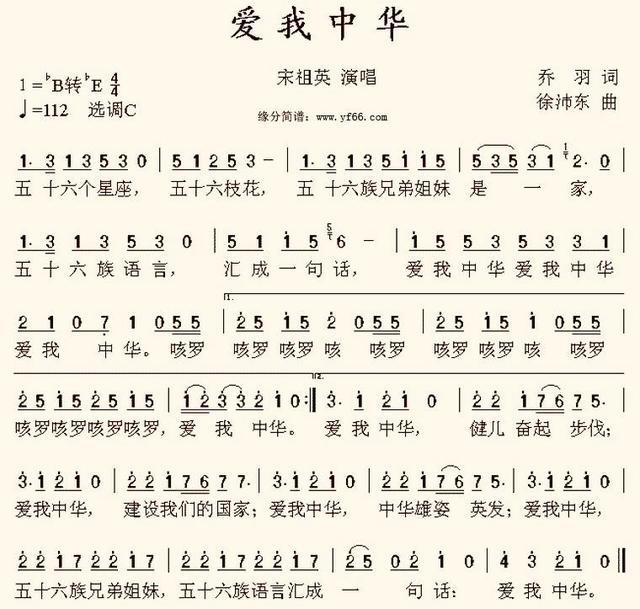 爱我中华
1=♭B转♭E 4/4 宋祖英 演唱 乔 羽 词
♩=112 选调C 缘分简谱：www.yf66.com 徐沛东 曲
1· 3 1 3 5 3 0 | 5 1 2 5 3 － | 1· 3 1 3 5 i i 5 | 5 3 5 3 1 2· 0 |
五 十六个星座， 五十六枝花， 五 十六族兄弟姐妹 是 一 家，
1· 3 1 3 5 3 0 | 5 1 1 5 6 － | i 5 5 3 5 3 3 1 |
五 十 六 族 语 言， 汇 成 一 句 话， 爱 我 中 华 爱 我 中 华
2 1 0 7 1 0 5 5 | 2 5 i 5 2 0 5 5 | 2 5 i 5 2 0 5 5 |
爱 我 中 华。 咳罗 咳罗 咳罗 咳 咳罗 咳罗 咳罗 咳 咳罗
1.
2 5 i 5 2 5 i 5 | i 2 3 3 2 i 0 :‖ 3· i 2 i 0 | 2 2 i 7 6 7 5· |
1 2.
咳罗咳罗咳罗咳罗， 爱 我 中华。 爱 我 中华， 健儿 奋起 步伐；
3· i 2 i 0 | 2 2 i 7 6 7 7· | 3· i 2 i 0 | 2 2 i 7 6 5 7· | 3· i 2 i 0 |
爱我中华， 建设我们的国家； 爱我中华， 中华雄姿 英发； 爱我中华，
2 2 i 7 2 2 i 7 | 2 2 i 7 2 2 i 7 | 2 5 0 2 i 0 | 4 3 2 i 0 ‖
五十六族兄弟姐妹， 五十六族语言汇成 一 句话： 爱 我 中华。